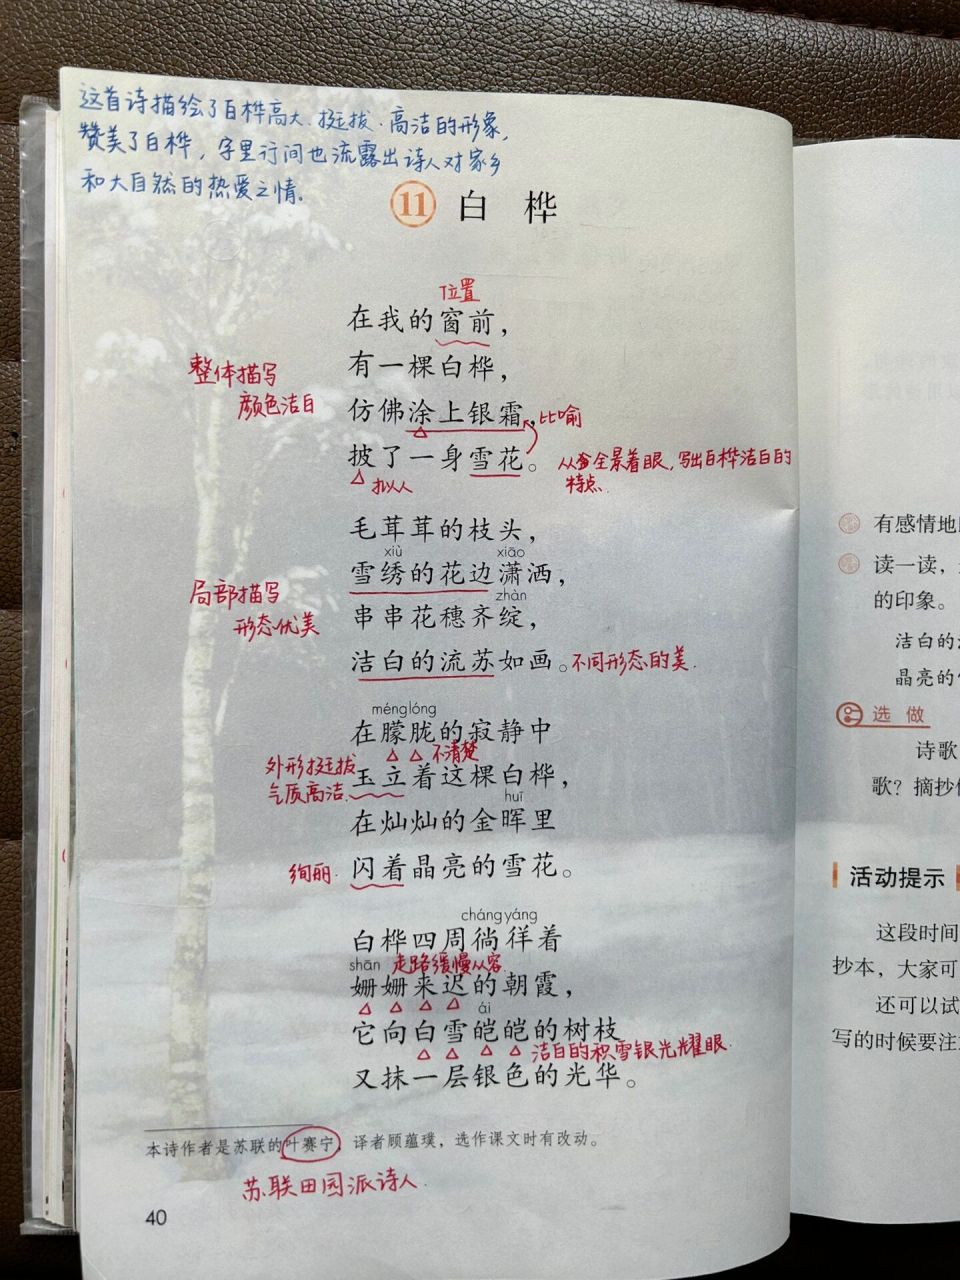 这首诗描绘了白桦高大、挺拔、高洁的形象,
赞美了白桦，字里行间也流露出诗人对家乡
和大自然的热爱之情。
11 白 桦
位置
在我的窗前，
有一棵白桦，
整体描写
颜色洁白
仿佛涂上银霜，比喻
披了一身雪花。
拟人
从全景着眼,写出白桦洁白的
特点.
毛茸茸的枝头，
xiù xiāo
雪绣的花边潇洒，
zhàn
局部描写
形态优美
串串花穗齐绽，
洁白的流苏如画。不同形态的美.
ménglóng
在朦胧的寂静中
不清楚
外形挺拔
气质高洁.
玉立着这棵白桦，
huī
在灿灿的金晖里
绚丽.
闪着晶亮的雪花。
cháng yáng
白桦四周徜徉着
shān 走路缓慢从容
姗姗来迟的朝霞，
ái
它向白雪皑皑的树枝
洁白的积雪银光耀眼.
又抹一层银色的光华。
本诗作者是苏联的叶赛宁，译者顾蕴璞，选作课文时有改动。
苏联田园派诗人.
40
有感情地
读一读，
的印象。
洁白的
晶亮的
选 做
诗歌
歌？摘抄
活动提示
这段时间
抄本，大家可
还可以试
写的时候要注